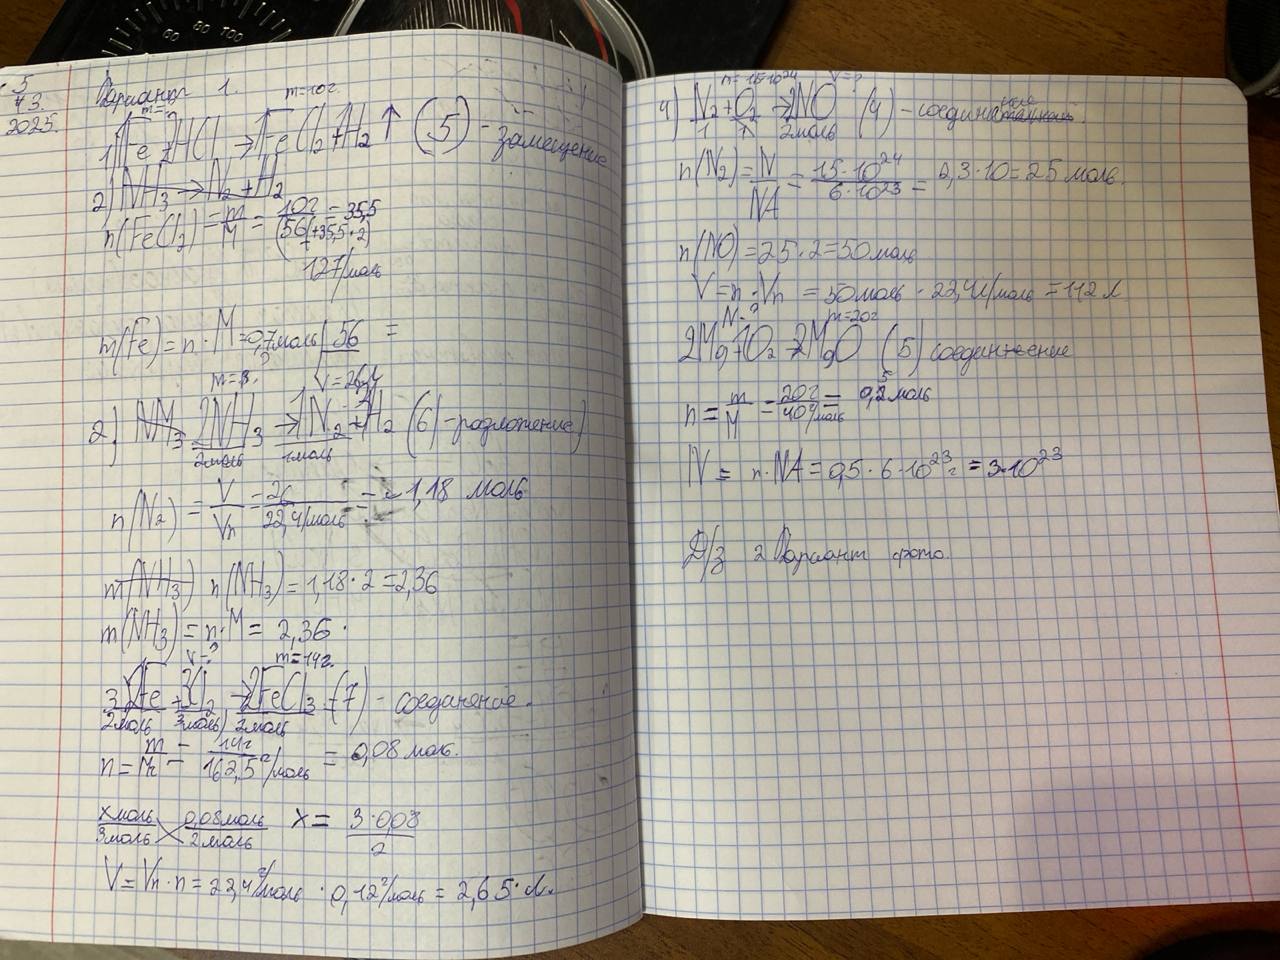 5
43.
2025.
Вариант 1.
m=? m=10г.
1) Fe+2HCl → FeCl2+H2↑ (5) - замещение
2) NH3 → N2+H2
n(FeCl2) = m/M = 10г/(56+35,5·2) = 35,5
127/моль
m(Fe) = n·M = 0,7моль | 56 =
m=?. V=26,4
2) NH3 2NH3 → 1N2+3H2 (6) - разложение)
2моль 1моль
n(N2) = V/Vn = 26/22,4/моль = ~1,18 моль
m(NH3) n(NH3) = 1,18·2=2,36
m(NH3) = n·M = 2,36·
V-? m=14г.
3 2Fe+3Cl2 → 2FeCl3 - (7) - соединение.
2моль 3моль 2моль
n = m/M = 14г/162,5г/моль = 0,08 моль.
xмоль/3моль 0,08моль/2моль x = 3·0,08/2
V=Vn·n = 22,4г/моль · 0,12г/моль = 2,65·л.
n=15·10^24 V=?
4) N2+O2 → 2NO (4) - соединение
1 1 2моль
n(N2) = N/NA = 15·10^24/6·10^23 = 2,3·10=25 моль.
n(NO) = 25·2=50моль
V=n·Vn = 50моль · 22,4л/моль = 112 л
N-? m=20г
2Mg+1O2 → 2MgO (5) соединение
n = m/M = 20г/40г/моль = 0,5моль
N = n·NA = 0,5·6·10^23 = 3·10^23
Д/з 2 Вариант фото.